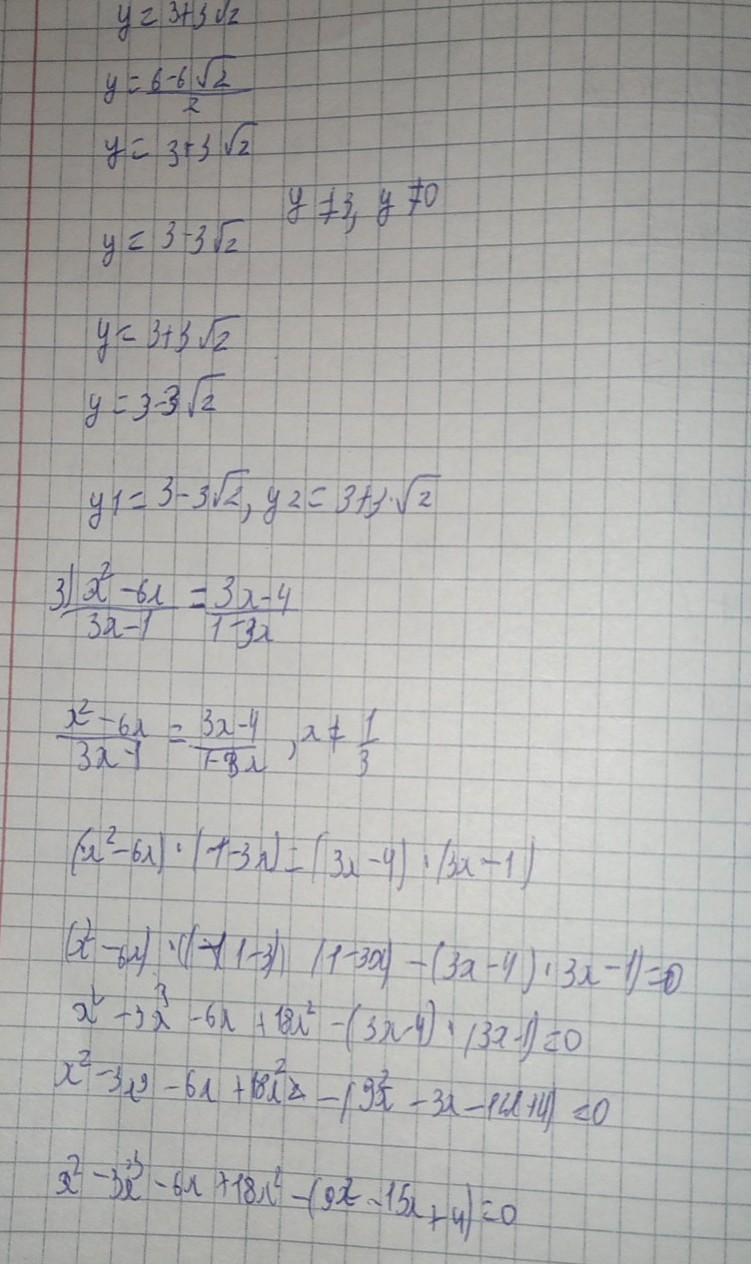 y = 3+3√2
y = (6-6√2)/2
y = 3+3√2
y ≠ 3, y ≠ 0
y = 3-3√2
y = 3+3√2
y = 3-3√2
y1 = 3-3√2, y2 = 3+3·√2
3) (x²-6x)/(3x-1) = (3x-4)/(1-3x)
(x²-6x)/(3x-1) = (3x-4)/(1-3x), x ≠ 1/3
(x²-6x)·(1-3x) = (3x-4)·(3x-1)
(x²-6x)· (1-3x) -(3x-4)·3x-1)=0
x² -3x³ -6x +18x² -(3x-4)·(3x-1)=0
x² -3x -6x +18x² -(9x² -3x -12x+4)=0
x² -3x³ -6x +18x² -(9x² -15x+4)=0